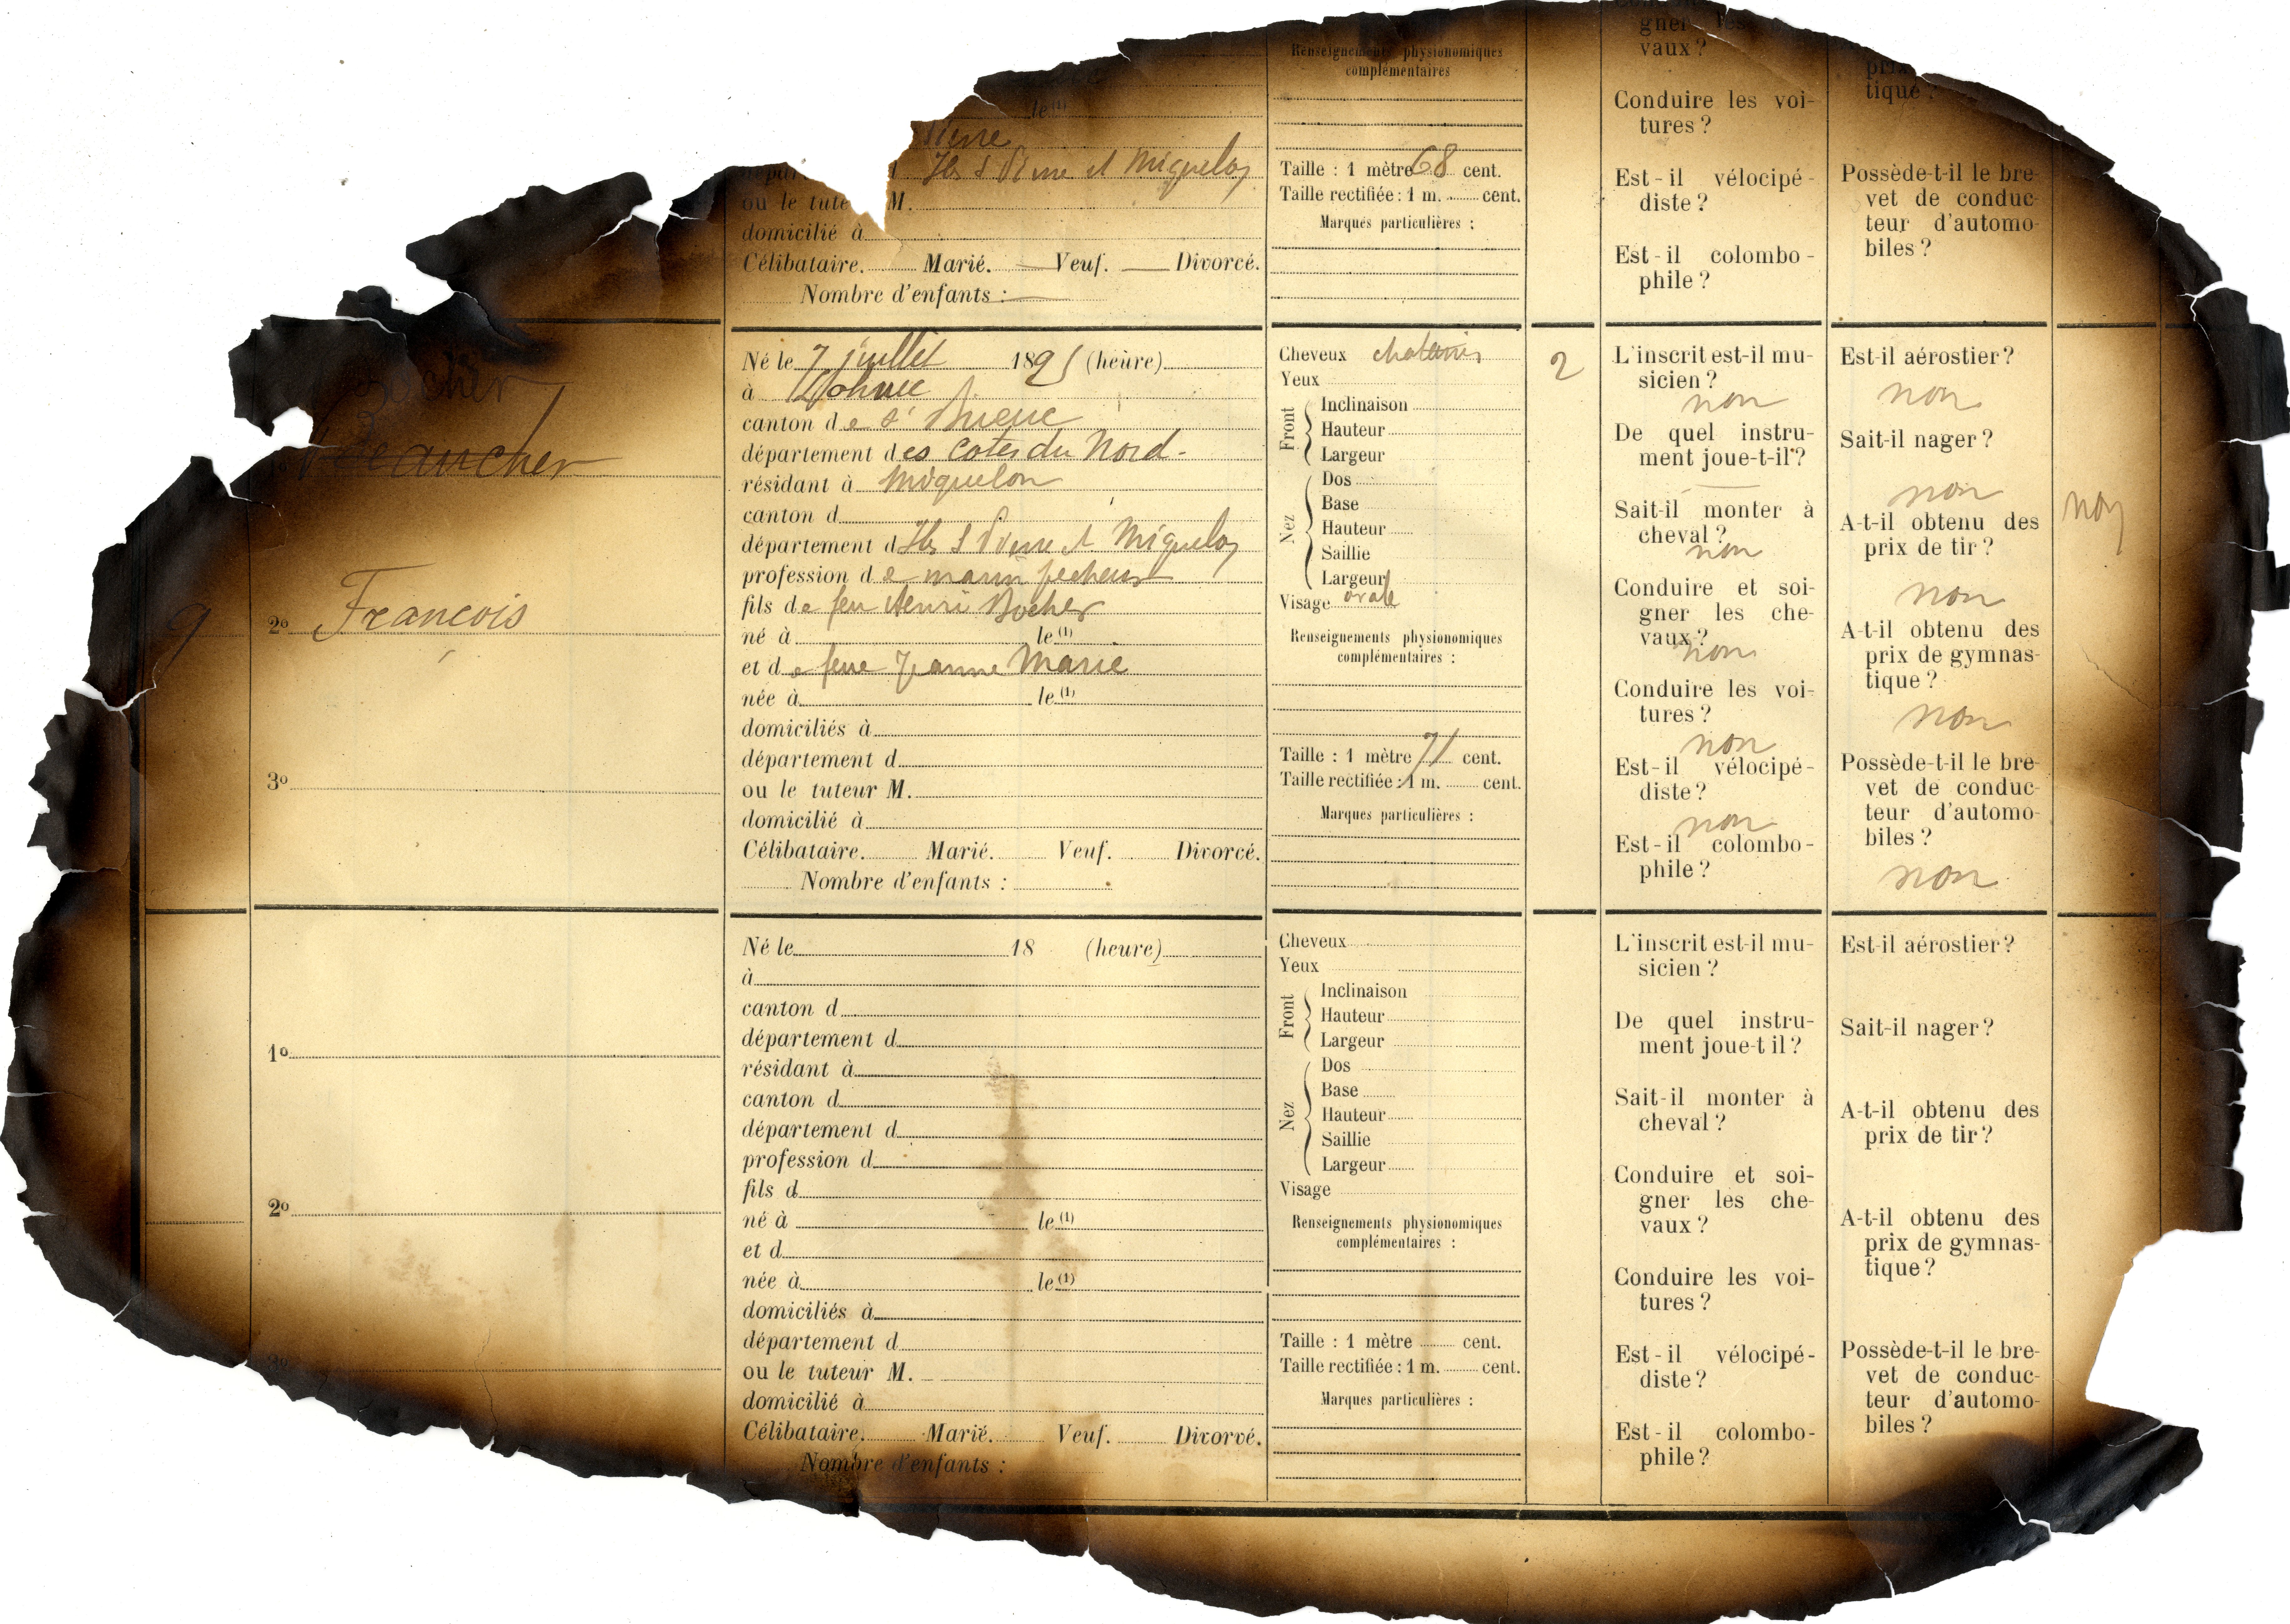 gner les
vaux ?
Conduire les voi-
tures ?
Est-il vélocipé-
diste ?
Est-il colombo-
phile ?
prix
tique ?
Possède-t-il le bre-
vet de conduc-
teur d'automo-
biles ?
Renseignements physionomiques
complémentaires
Taille : 1 mètre 68 cent.
Taille rectifiée : 1 m. cent.
Marques particulières :
le (1)
Pierre
Iles St Pierre et Miquelon
ou le tute M.
domicilié à
Célibataire. Marié. — Veuf. — Divorcé.
Nombre d'enfants : —
9
Bocher
1º Beaucher
2º François
3º
Né le 7 juillet 1895 (heure)
à
canton de St Brieuc
département des Cotes du Nord-
résidant à Miquelon
canton d
département d Iles St Pierre et Miquelon
profession de marin pecheur
fils de feu Henri Bocher
né à le (1)
et de feue Jeanne Marie
née à le (1)
domiciliés à
département d
ou le tuteur M.
domicilié à
Célibataire. Marié. Veuf. Divorcé.
Nombre d'enfants :
Cheveux chatains
Yeux
Front
Inclinaison
Hauteur
Largeur
Nez
Dos
Base
Hauteur
Saillie
Largeur
Visage ovale
Renseignements physionomiques
complémentaires :
Taille : 1 mètre 71 cent.
Taille rectifiée : 1 m. cent.
Marques particulières :
2
L'inscrit est-il mu-
sicien ?
non
De quel instru-
ment joue-t-il ?
—
Sait-il monter à
cheval ?
non
Conduire et soi-
gner les che-
vaux ?
non
Conduire les voi-
tures ?
non
Est-il vélocipé-
diste ?
non
Est-il colombo-
phile ?
Est-il aérostier ?
non
Sait-il nager ?
non
A-t-il obtenu des
prix de tir ?
non
A-t-il obtenu des
prix de gymnas-
tique ?
non
Possède-t-il le bre-
vet de conduc-
teur d'automo-
biles ?
non
non
1º
2º
3º
Né le 18 (heure)
à
canton d
département d
résidant à
canton d
département d
profession d
fils d
né à le (1)
et d
née à le (1)
domiciliés à
département d
ou le tuteur M.
domicilié à
Célibataire. Marié. Veuf. Divorvé.
Nombre d'enfants :
Cheveux
Yeux
Front
Inclinaison
Hauteur
Largeur
Nez
Dos
Base
Hauteur
Saillie
Largeur
Visage
Renseignements physionomiques
complémentaires :
Taille : 1 mètre cent.
Taille rectifiée : 1 m. cent.
Marques particulières :
L'inscrit est-il mu-
sicien ?
De quel instru-
ment joue-t il ?
Sait-il monter à
cheval ?
Conduire et soi-
gner les che-
vaux ?
Conduire les voi-
tures ?
Est-il vélocipé-
diste ?
Est-il colombo-
phile ?
Est-il aérostier ?
Sait-il nager ?
A-t-il obtenu des
prix de tir ?
A-t-il obtenu des
prix de gymnas-
tique ?
Possède-t-il le bre-
vet de conduc-
teur d'automo-
biles ?